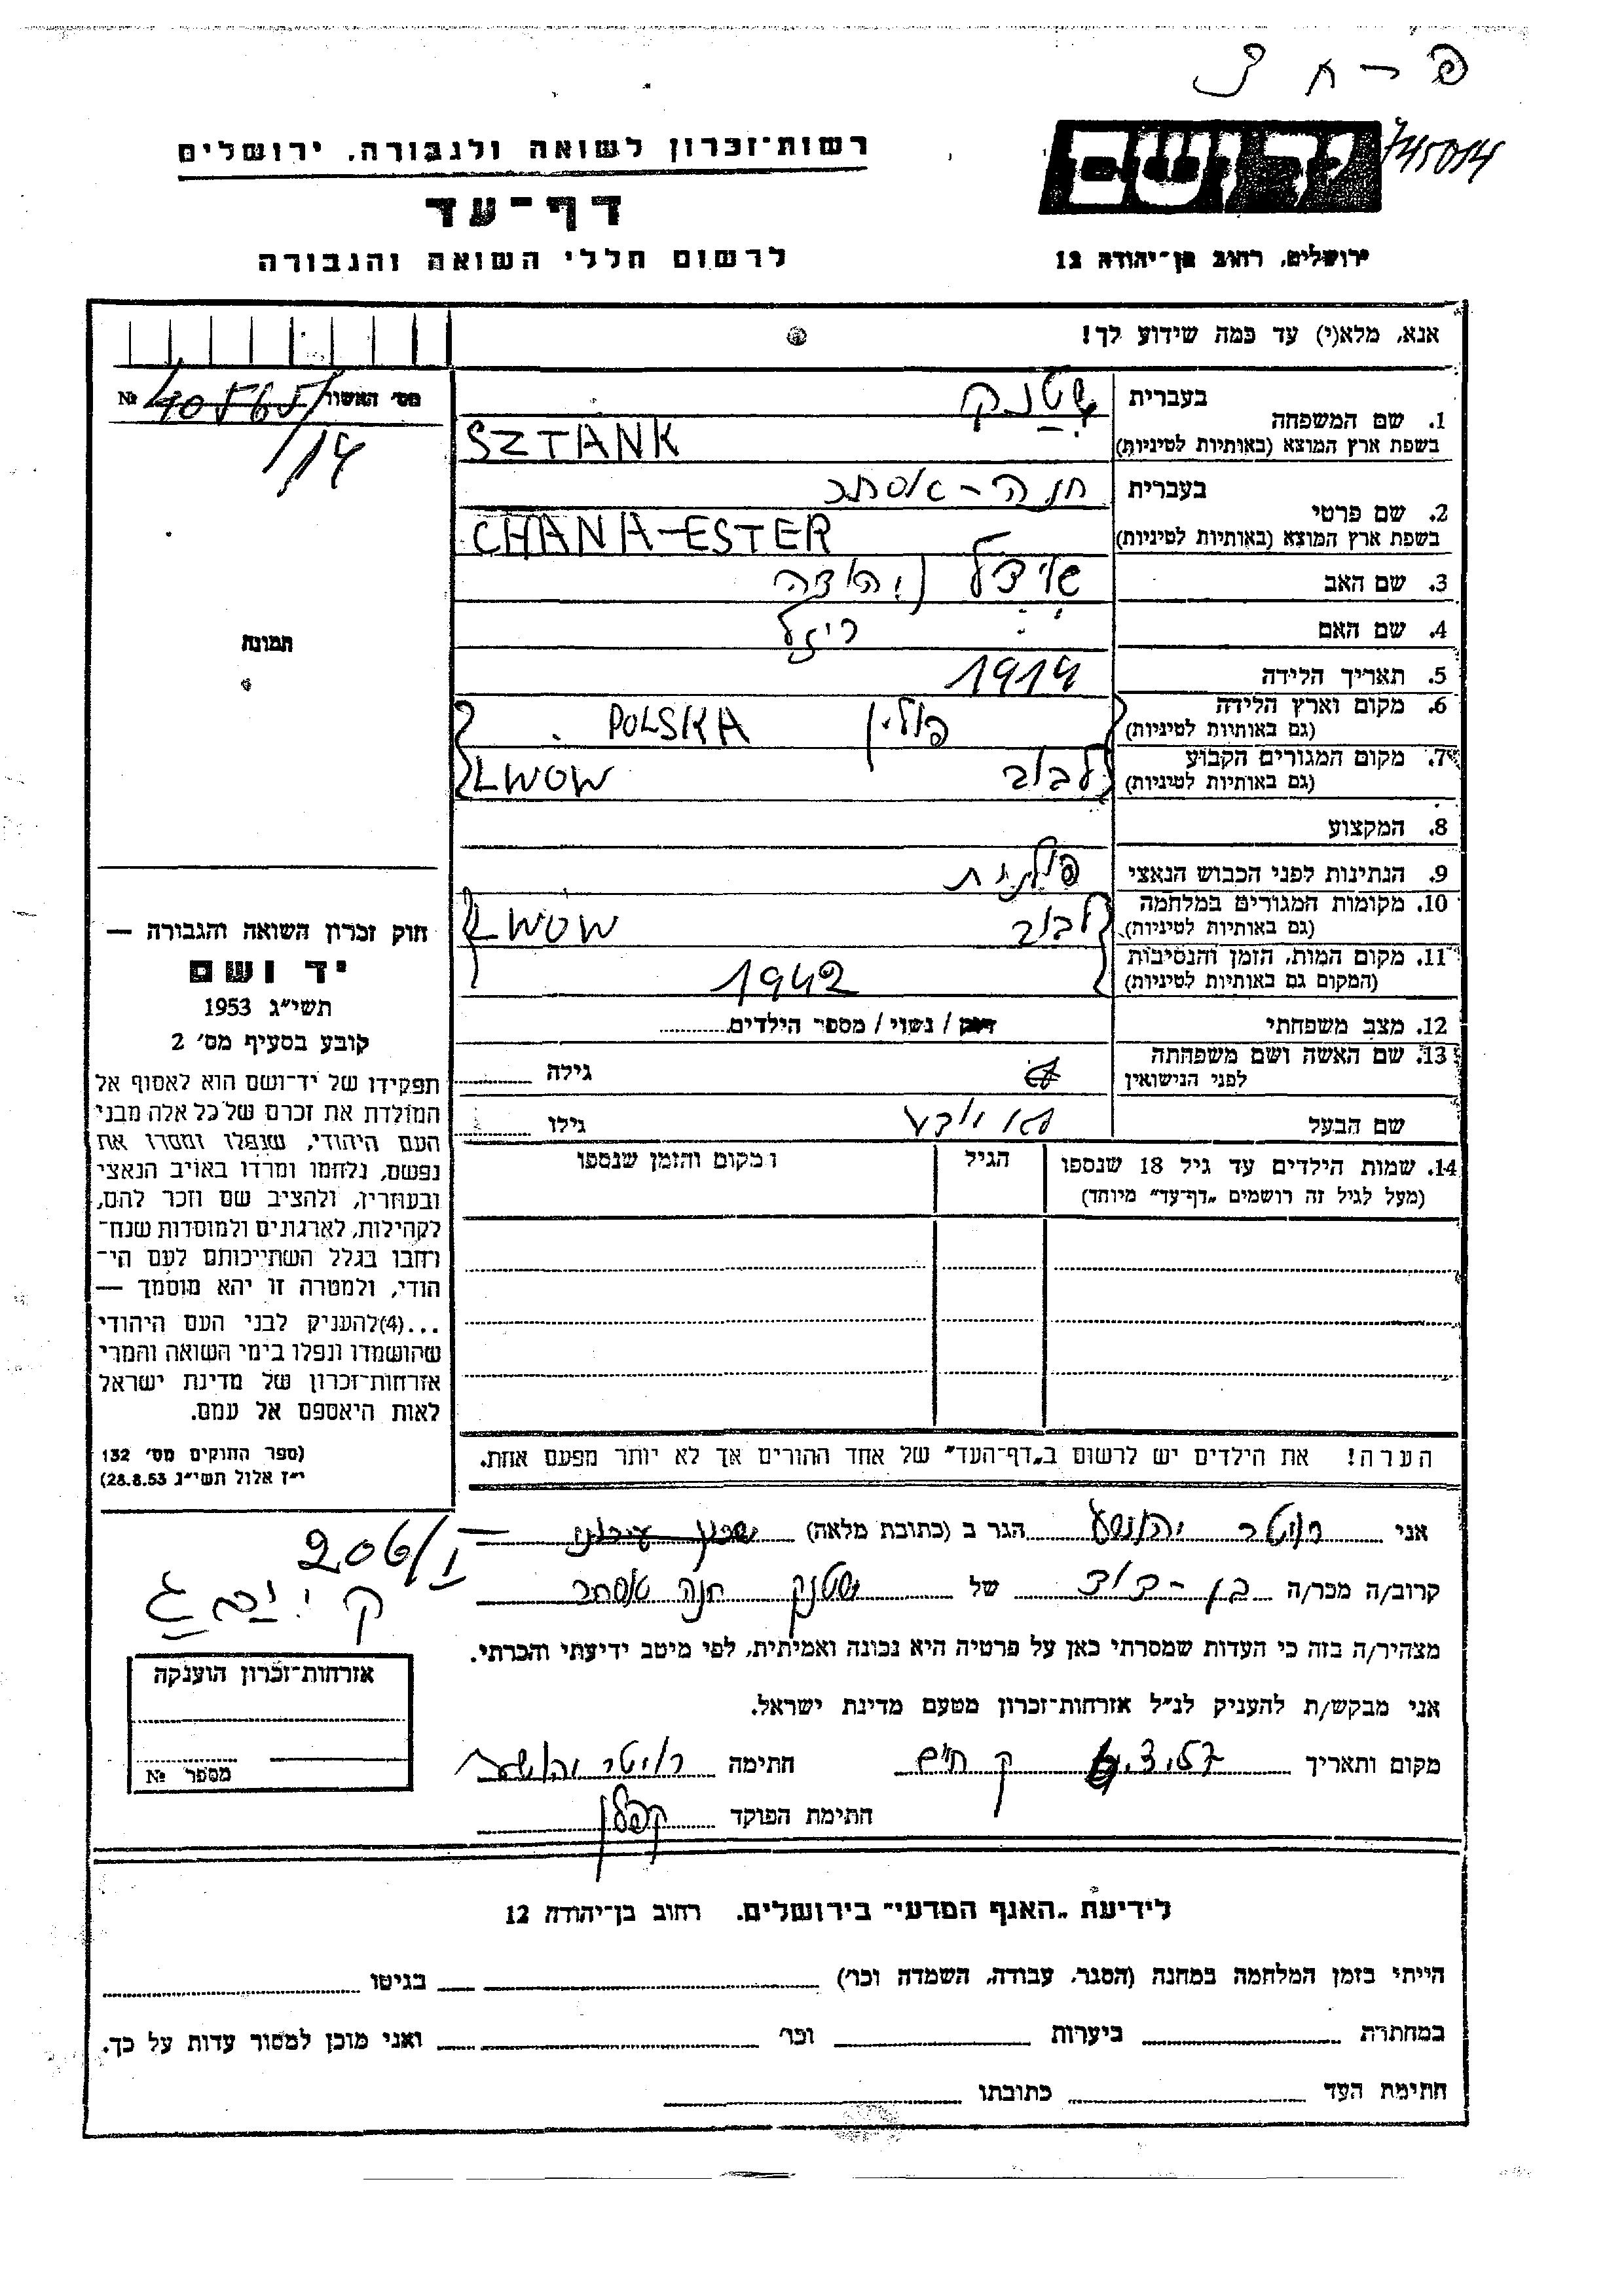 745014
רשות־זכרון לשואה ולגבורה, ירושלים
דף־עד
לרשום חללי השואה והגבורה
ירושלים, רחוב בן־יהודה 12
אנא, מלא(י) עד כמה שידוע לך!
מס׳ האשור № 40565/14
1. שם המשפחה
בעברית שטנק
בשפת ארץ המוצא (באותיות לטיניות) SZTANK
2. שם פרטי
בעברית חנה-אסתר
בשפת ארץ המוצא (באותיות לטיניות) CHANA-ESTER
3. שם האב אידל יהודה
4. שם האם רייזל
5. תאריך הלידה 1914
6. מקום וארץ הלידה
(גם באותיות לטיניות) פולין POLSKA
7. מקום המגורים הקבוע
(גם באותיות לטיניות) לבוב LWOW
8. המקצוע
9. הנתינות לפני הכבוש הנאצי פולנית
10. מקומות המגורים במלחמה
(גם באותיות לטיניות) לבוב LWOW
11. מקום המות, הזמן והנסיבות
(המקום גם באותיות לטיניות) 1942
12. מצב משפחתי רווק / נשוי / מספר הילדים
13. שם האשה ושם משפחתה
לפני הנישואין גילה
שם הבעל לא ידוע גילו
14. שמות הילדים עד גיל 18 שנספו
(מעל לגיל זה רושמים „דף־עד״ מיוחד)
הגיל
מקום והזמן שנספו
תמונה
חוק זכרון השואה והגבורה —
יד ושם
תשי״ג 1953
קובע בסעיף מס׳ 2
תפקידו של יד־ושם הוא לאסוף אל
המולדת את זכרם של כל אלה מבני
העם היהודי, שנפלו ומסרו את
נפשם, נלחמו ומרדו באויב הנאצי
ובעוזריו, ולהציב שם וזכר להם,
לקהילות, לארגונים ולמוסדות שנח־
רחבו בגלל השתייכותם לעם הי־
הודי, ולמטרה זו יהא מוסמך —
...(4) להעניק לבני העם היהודי
שהושמדו ונפלו בימי השואה והמרי
אזרחות־זכרון של מדינת ישראל
לאות היאספם אל עמם.
(ספר החוקים מס׳ 132
י״ז אלול תשי״ג 28.8.53)
הערה! את הילדים יש לרשום ב„דף־העד״ של אחד ההורים אך לא יותר מפעם אחת.
אני רויטר יהושע הגר ב (כתובת מלאה)
206/I
קרוב/ה מכר/ה בן-דוד של שטנק חנה אסתר
מצהיר/ה בזה כי העדות שמסרתי כאן על פרטיה היא נכונה ואמיתית, לפי מיטב ידיעתי והכרתי.
אני מבקש/ת להעניק לנ״ל אזרחות־זכרון מטעם מדינת ישראל.
מקום ותאריך ק חיים 6.3.57 חתימה רויטר יהושע
חתימת הפוקד קפלן
אזרחות־זכרון הוענקה
מספר №
לידיעת „האגף המדעי״ בירושלים. רחוב בן־יהודה 12
הייתי בזמן המלחמה במחנה (הסגר, עבודה, השמדה וכו׳) בגיטו
במחתרת ביערות וכו׳ ואני מוכן למסור עדות על כך.
חתימת העד כתובתו